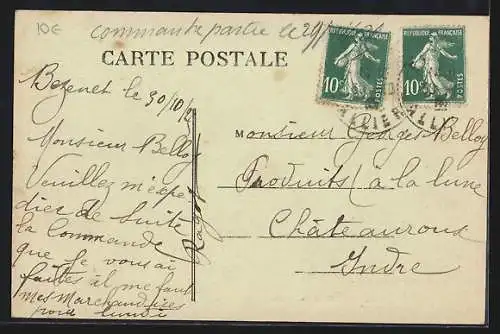 10€
commande partie le 29/
CARTE POSTALE
REPUBLIQUE FRANÇAISE
10c
POSTES
REPUBLIQUE FRANÇAISE
10c
POSTES
ALLIER
Bezenet le 30/10/
Monsieur Belloy
Veuillez m'expé
dier de suite
la Commande
que je vous ai
faites il me faut
mes Marchandises
pour lundi
M
Monsieur Georges Belloy
Produits (a la lune
Châteauroux
Indre